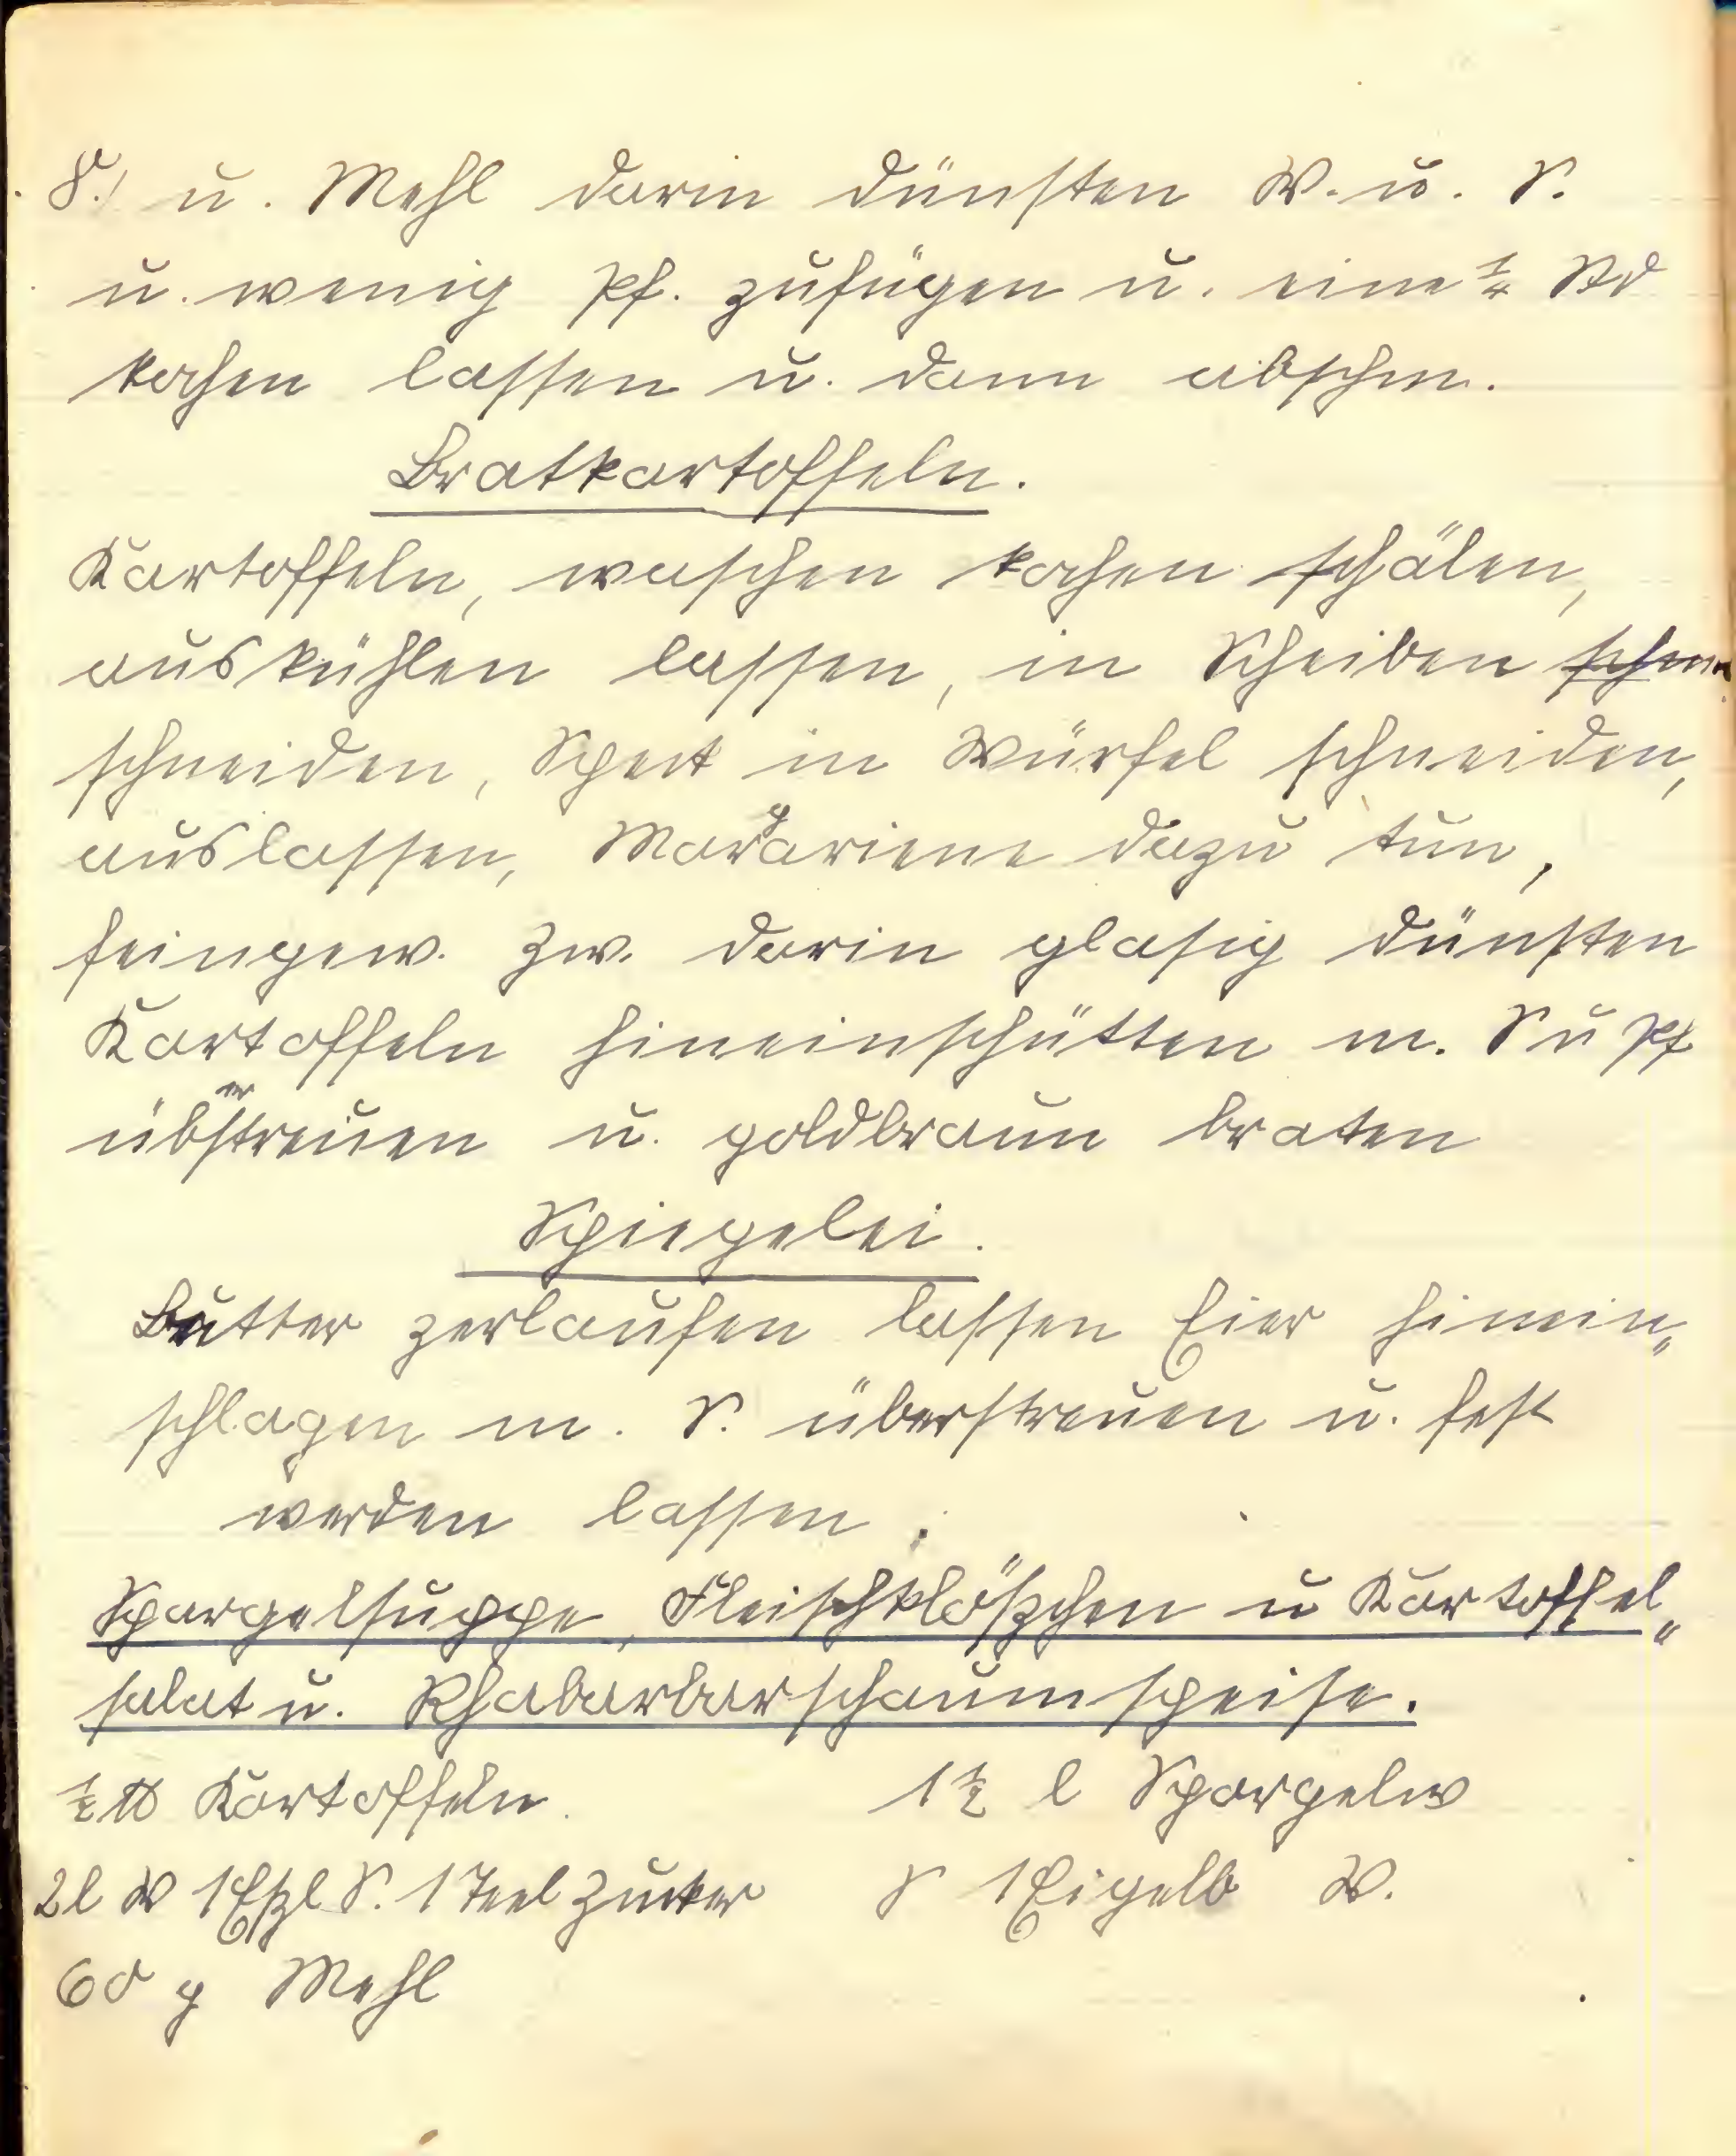 8.) u. Mehl darin dünsten W. u. S.
u. wenig Pf. zufügen u. eine ¼ Std
kochen lassen u. dann abschm.
Bratkartoffeln.
Kartoffeln, waschen kochen schälen,
auskühlen lassen, in Scheiben schm
schneiden, Speck in Würfel schneiden,
auslassen, Margariene dazu tun,
feingew. Zw. darin glasig dünsten
Kartoffeln hineinschütten m. S u Pf
überstreuen u. goldbraun braten
Spiegelei.
Butter zerlaufen lassen Eier hinein„
schlagen m. S. überstreuen u. fest
werden lassen.
Spargelsuppe, Fleischklößchen u Kartoffel„
salat u. Rhabarbarschaumspeise.
½ ℔ Kartoffeln. 1½ l Spargelw
2 l W 1 Eßl S. 1 Teel Zucker S 1 Eigelb W.
60 g Mehl